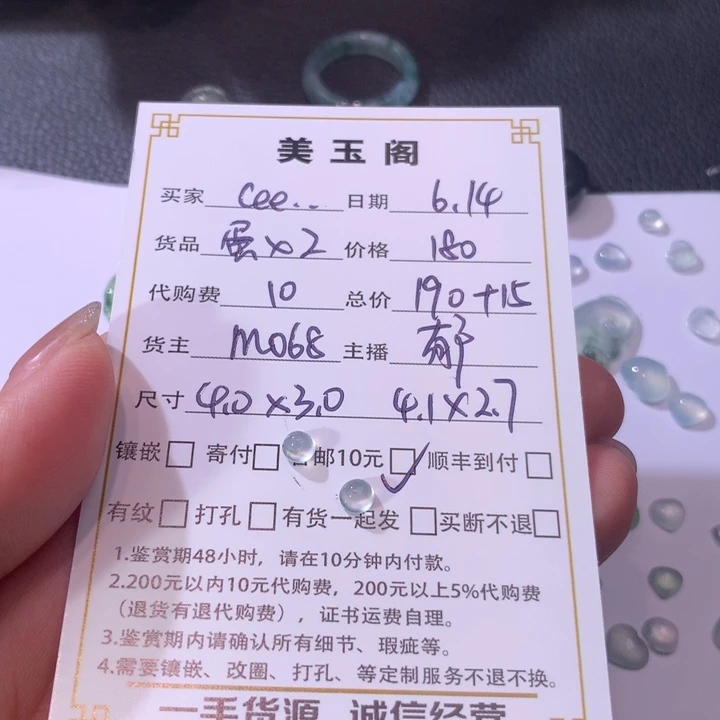 美玉阁
买家 cee.. 日期 6.14
货品 蛋x2 价格 180
代购费 10 总价 190+15
货主 M068 主播 郁
尺寸 4.0x3.0 4.1x2.7
镶嵌□ 寄付□ 邮10元☑ 顺丰到付□
有纹□ 打孔□ 有货一起发□ 买断不退□
1.鉴赏期48小时，请在10分钟内付款。
2.200元以内10元代购费，200元以上5%代购费
（退货有退代购费），证书运费自理。
3.鉴赏期内请确认所有细节、瑕疵等。
4.需要镶嵌、改圈、打孔、等定制服务不退不换。
一手货源 诚信经营